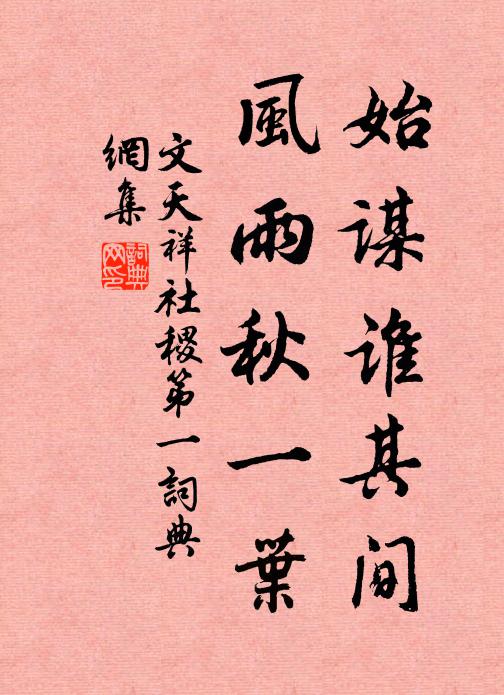 始謀誰其間
風雨秋一葉
文天祥社稷第一詞典
網集
詞典
网印